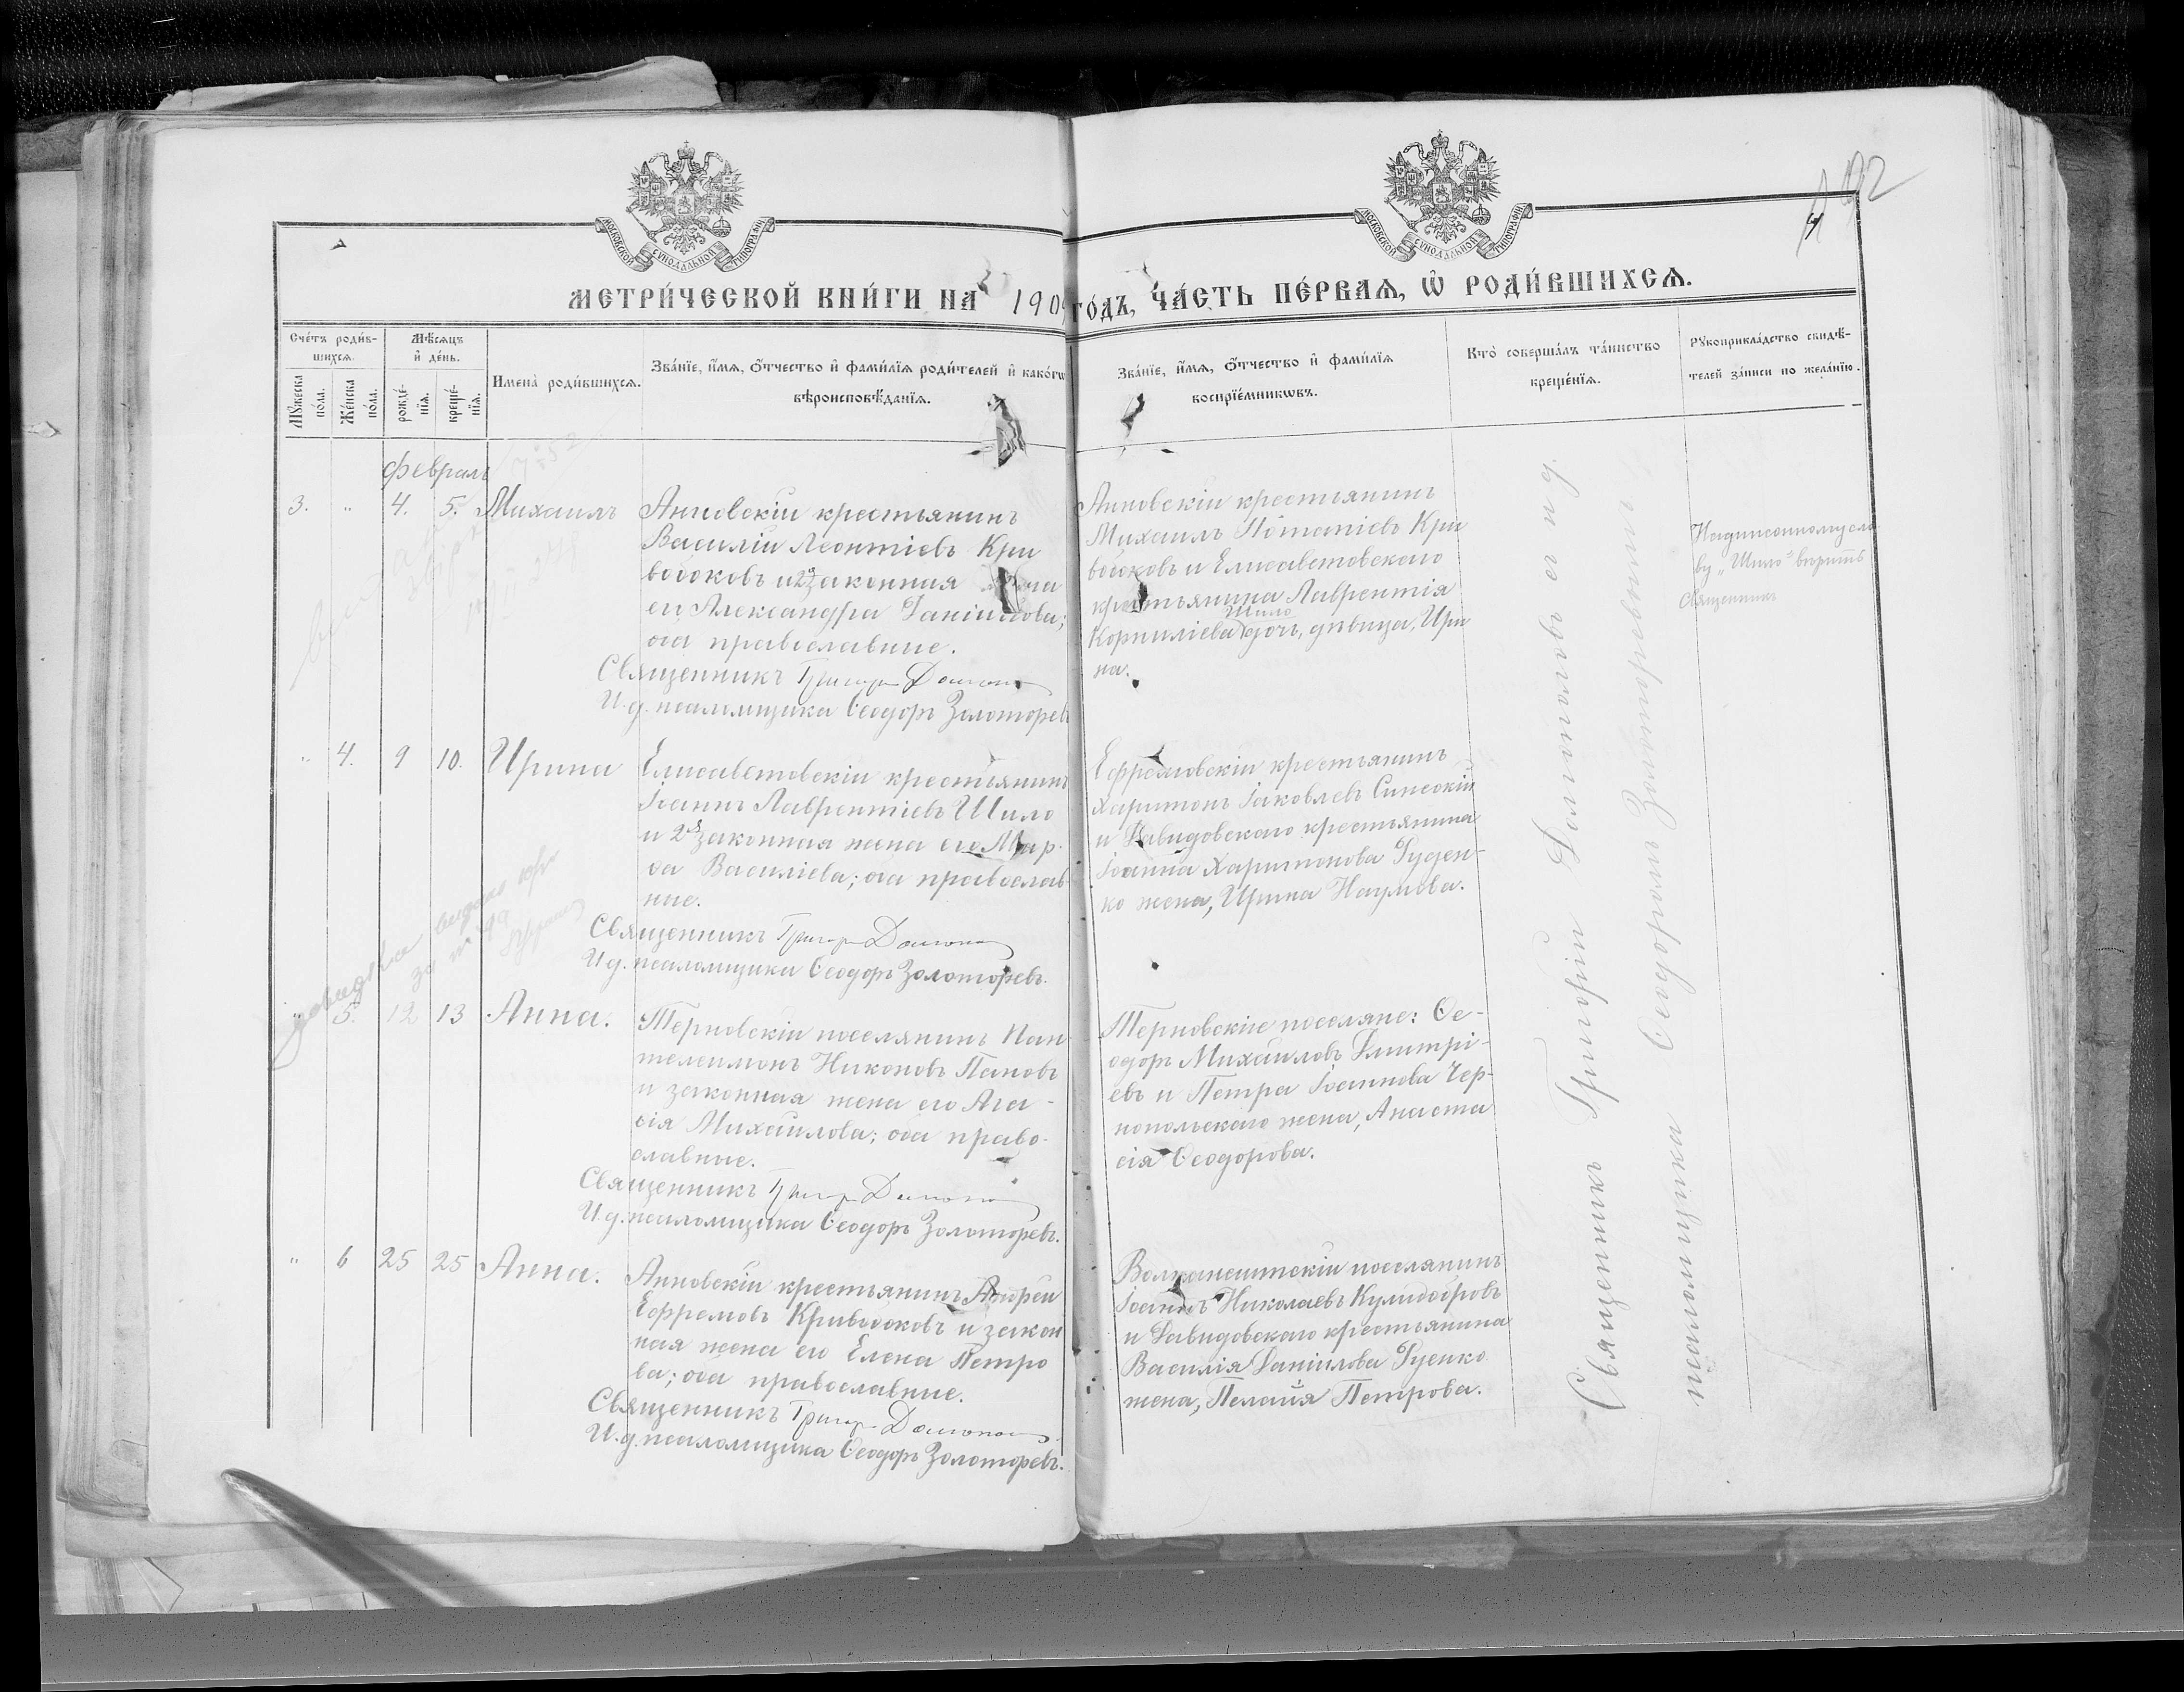 192
МОСКОВСКОЙ СУНОДАЛЬНОЙ ТИПОГРАФІИ
МОСКОВСКОЙ СУНОДАЛЬНОЙ ТИПОГРАФІИ
МЕТРИ́ЧЕСКОЙ КНИ́ГИ НА 1909 ГО́ДЪ, ЧА́СТЬ ПЕ́РВАѦ, Ѡ҆ РОДИ́ВШИХСѦ.
Сче́тъ роди́в-
шихсѧ.
Мѣ́сѧцъ
и҆ де́нь.
Мꙋ́жеска
по́ла.
Же́нска
по́ла.
рожде́-
нїѧ.
креще́-
нїѧ.
Имена̀ роди́вшихсѧ.
Зва́нїе, и҆́мѧ, ѻ҆́тчество и҆ фами́лїѧ роди́телей и҆ како́гѡ
вѣроисповѣ́данїѧ.
Зва́нїе, и҆́мѧ, ѻ҆́тчество и҆ фами́лїѧ
воспрїе́мникѡвъ.
Кто̀ соверша́лъ та́инство
креще́нїѧ.
Рꙋкоприкла́дство свидѣ́-
телей за́писи по жела́нїю.
Февраль
3. " 4. 5. Михаилъ
Анновскій крестьянинъ
Василій Леонтіевъ Кри
вобоковъ и 2я законная жена
его Александра Даніилова;
оба православные.
Священникъ Григорій
И.д. псаломщика Ѳеодоръ Золоторевъ
Анновскій крестьянинъ
Михаилъ Потапіевъ Кри
вобоковъ и Елисаветовскаго
крестьянина Лаврентія
Шило
Корниліева дочь, дѣвица, Ири
на.
Надписанному сло
ву "Шило" вѣрить
Священникъ
" 4. 9 10. Ирина
Елисаветовскій крестьянинъ
Іоаннъ Лаврентіевъ Шило
и 2я законная жена его Мар-
ѳа Василіева; оба православ
ные.
Священникъ Григорій
И.д. псаломщика Ѳеодоръ Золоторевъ.
Ефремовскій крестьянинъ
Харитонъ Іаковлевъ
и Давидовскаго крестьянина
Іоанна Харитонова Гуцен-
ко жена, Ирина Наумова.
" 5. 12 13 Анна.
Терновскій поселянинъ Пан
телеимонъ Никоновъ Пановъ
и законная жена его Ага-
ѳія Михаилова; оба право-
славные.
Священникъ Григорій
И.д. псаломщика Ѳеодоръ Золоторевъ.
Терновскіе поселяне: Ѳе-
одоръ Михаиловъ Димитрі-
евъ и Петра Іоаннова Чер-
нопольскаго жена, Анаста
сія Ѳеодорова.
" 6 25 25 Анна.
Анновскій крестьянинъ Андрей
Ефремовъ Кривобоковъ и закон
ная жена его Елена Петро
ва; оба православные.
Священникъ Григорій
И.д. псаломщика Ѳеодоръ Золоторевъ.
поселянинъ
Іоаннъ Николаевъ
и Давидовскаго крестьянина
Василія Даніилова Гуценко
жена, Пелагія Петрова.
Священникъ Григорій съ и.д.
псаломщика Ѳеодоромъ Золоторевымъ